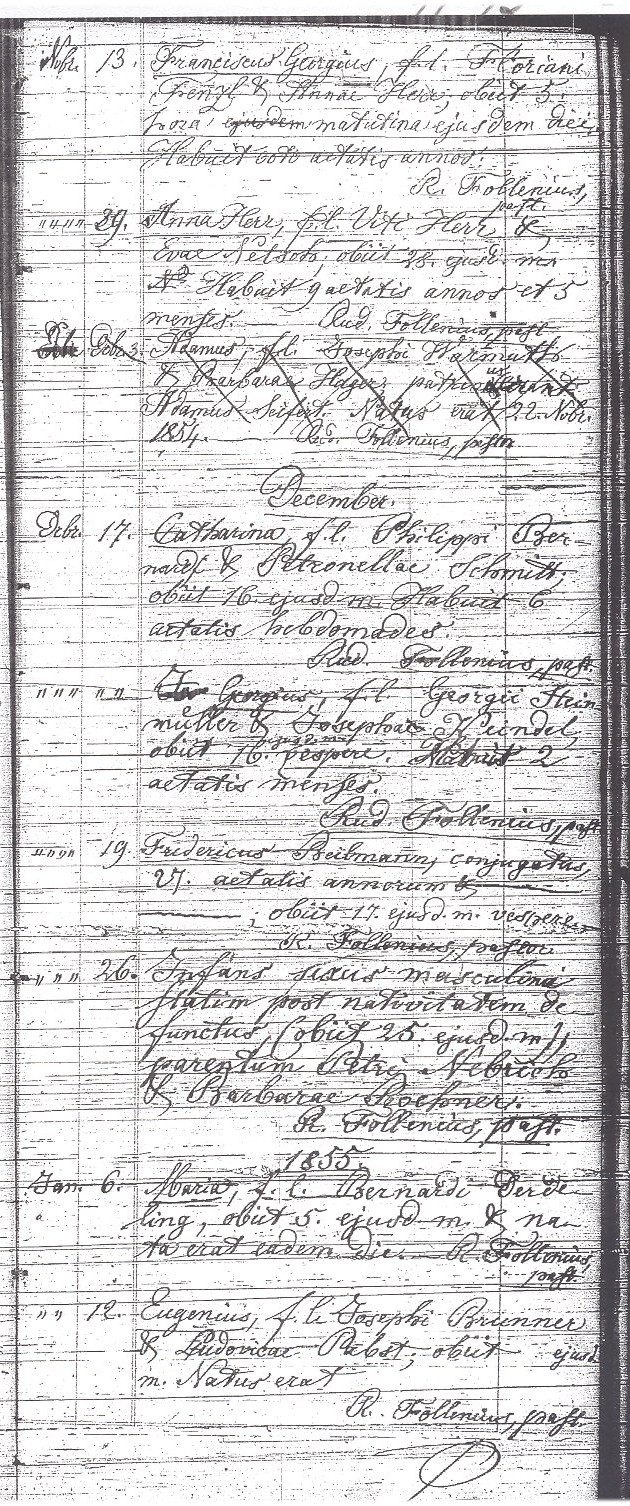 Nobr. 13. Franciscus Georgius, f. l. Floriani
Frenzl & Annae Herr, obiit 5.
hora ejusdem matutina ejusdem diei,
Habuit octo aetatis annos.
R. Follenius,
past.
" " " " 29. Anna Herr, f. l. Viti Herr &
Evae , obiit 28. ejusd. m.
Habuit 9 aetatis annos et 5
menses. Rud. Follenius, past.
Debr. 3. Adamus, f. l. Josephi Warmuth
& Barbarae Hager, patrinus
Adamus Seifert. Natus erat 22. Nobr.
1854. Rud. Follenius, pastor
December.
Debr. 17. Catharina, f. l. Philippi Ber-
nardi & Petronellae Schmitt;
obiit 16. ejusd. m. Habuit 6
aetatis hebdomades.
Rud. Follenius, past.
" " " " " Georgius, f. l. Georgii Stein
müller & Josephae Keindel,
obiit 16. ejusd. m. vespere. Habuit 2
aetatis menses.
Rud. Follenius, past.
" " " " 19. Fridericus Beilmann, conjugatus,
27. aetatis annorum &
, obiit 17. ejusd. m. vespere.
R. Follenius, pastor.
" " " 26. Infans sexus masculini
statim post nativitatem de
functus, (obiit 25. ejusd. m.),
parentum Petri Nebrich
& Barbarae Roehner.
R. Follenius, past.
1855.
Jan. 6. Maria, f. l. Bernardi Derde
ling, obiit 5. ejusd. m. & na
ta erat eadem die. R. Follenius,
past.
" " 12. Eugenius, f. l. Josephi Brunner
& Ludovicae Pabst, obiit ejusd
m. Natus erat
R. Follenius, past.